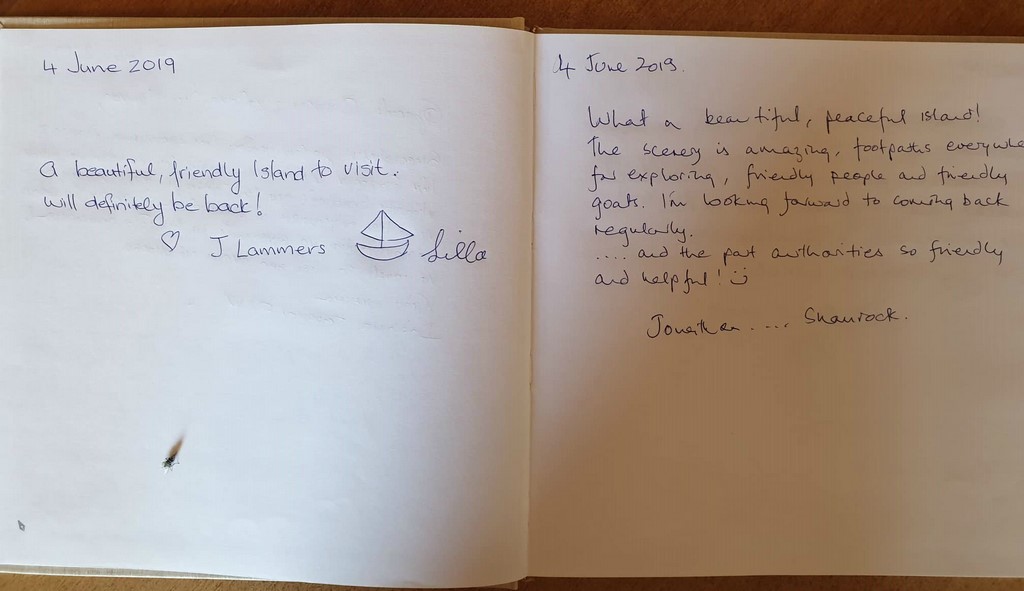 4 June 2019
A beautiful, friendly Island to visit.
will definitely be back!
♡ J Lammers
Lilla
4 June 2019.
What a beautiful, peaceful island!
The scenery is amazing, footpaths everywhe
for exploring, friendly people and friendly
goats. I'm looking forward to coming back
regularly.
.... and the port authorities so friendly
and helpful!
Jonathan .... Shamrock.